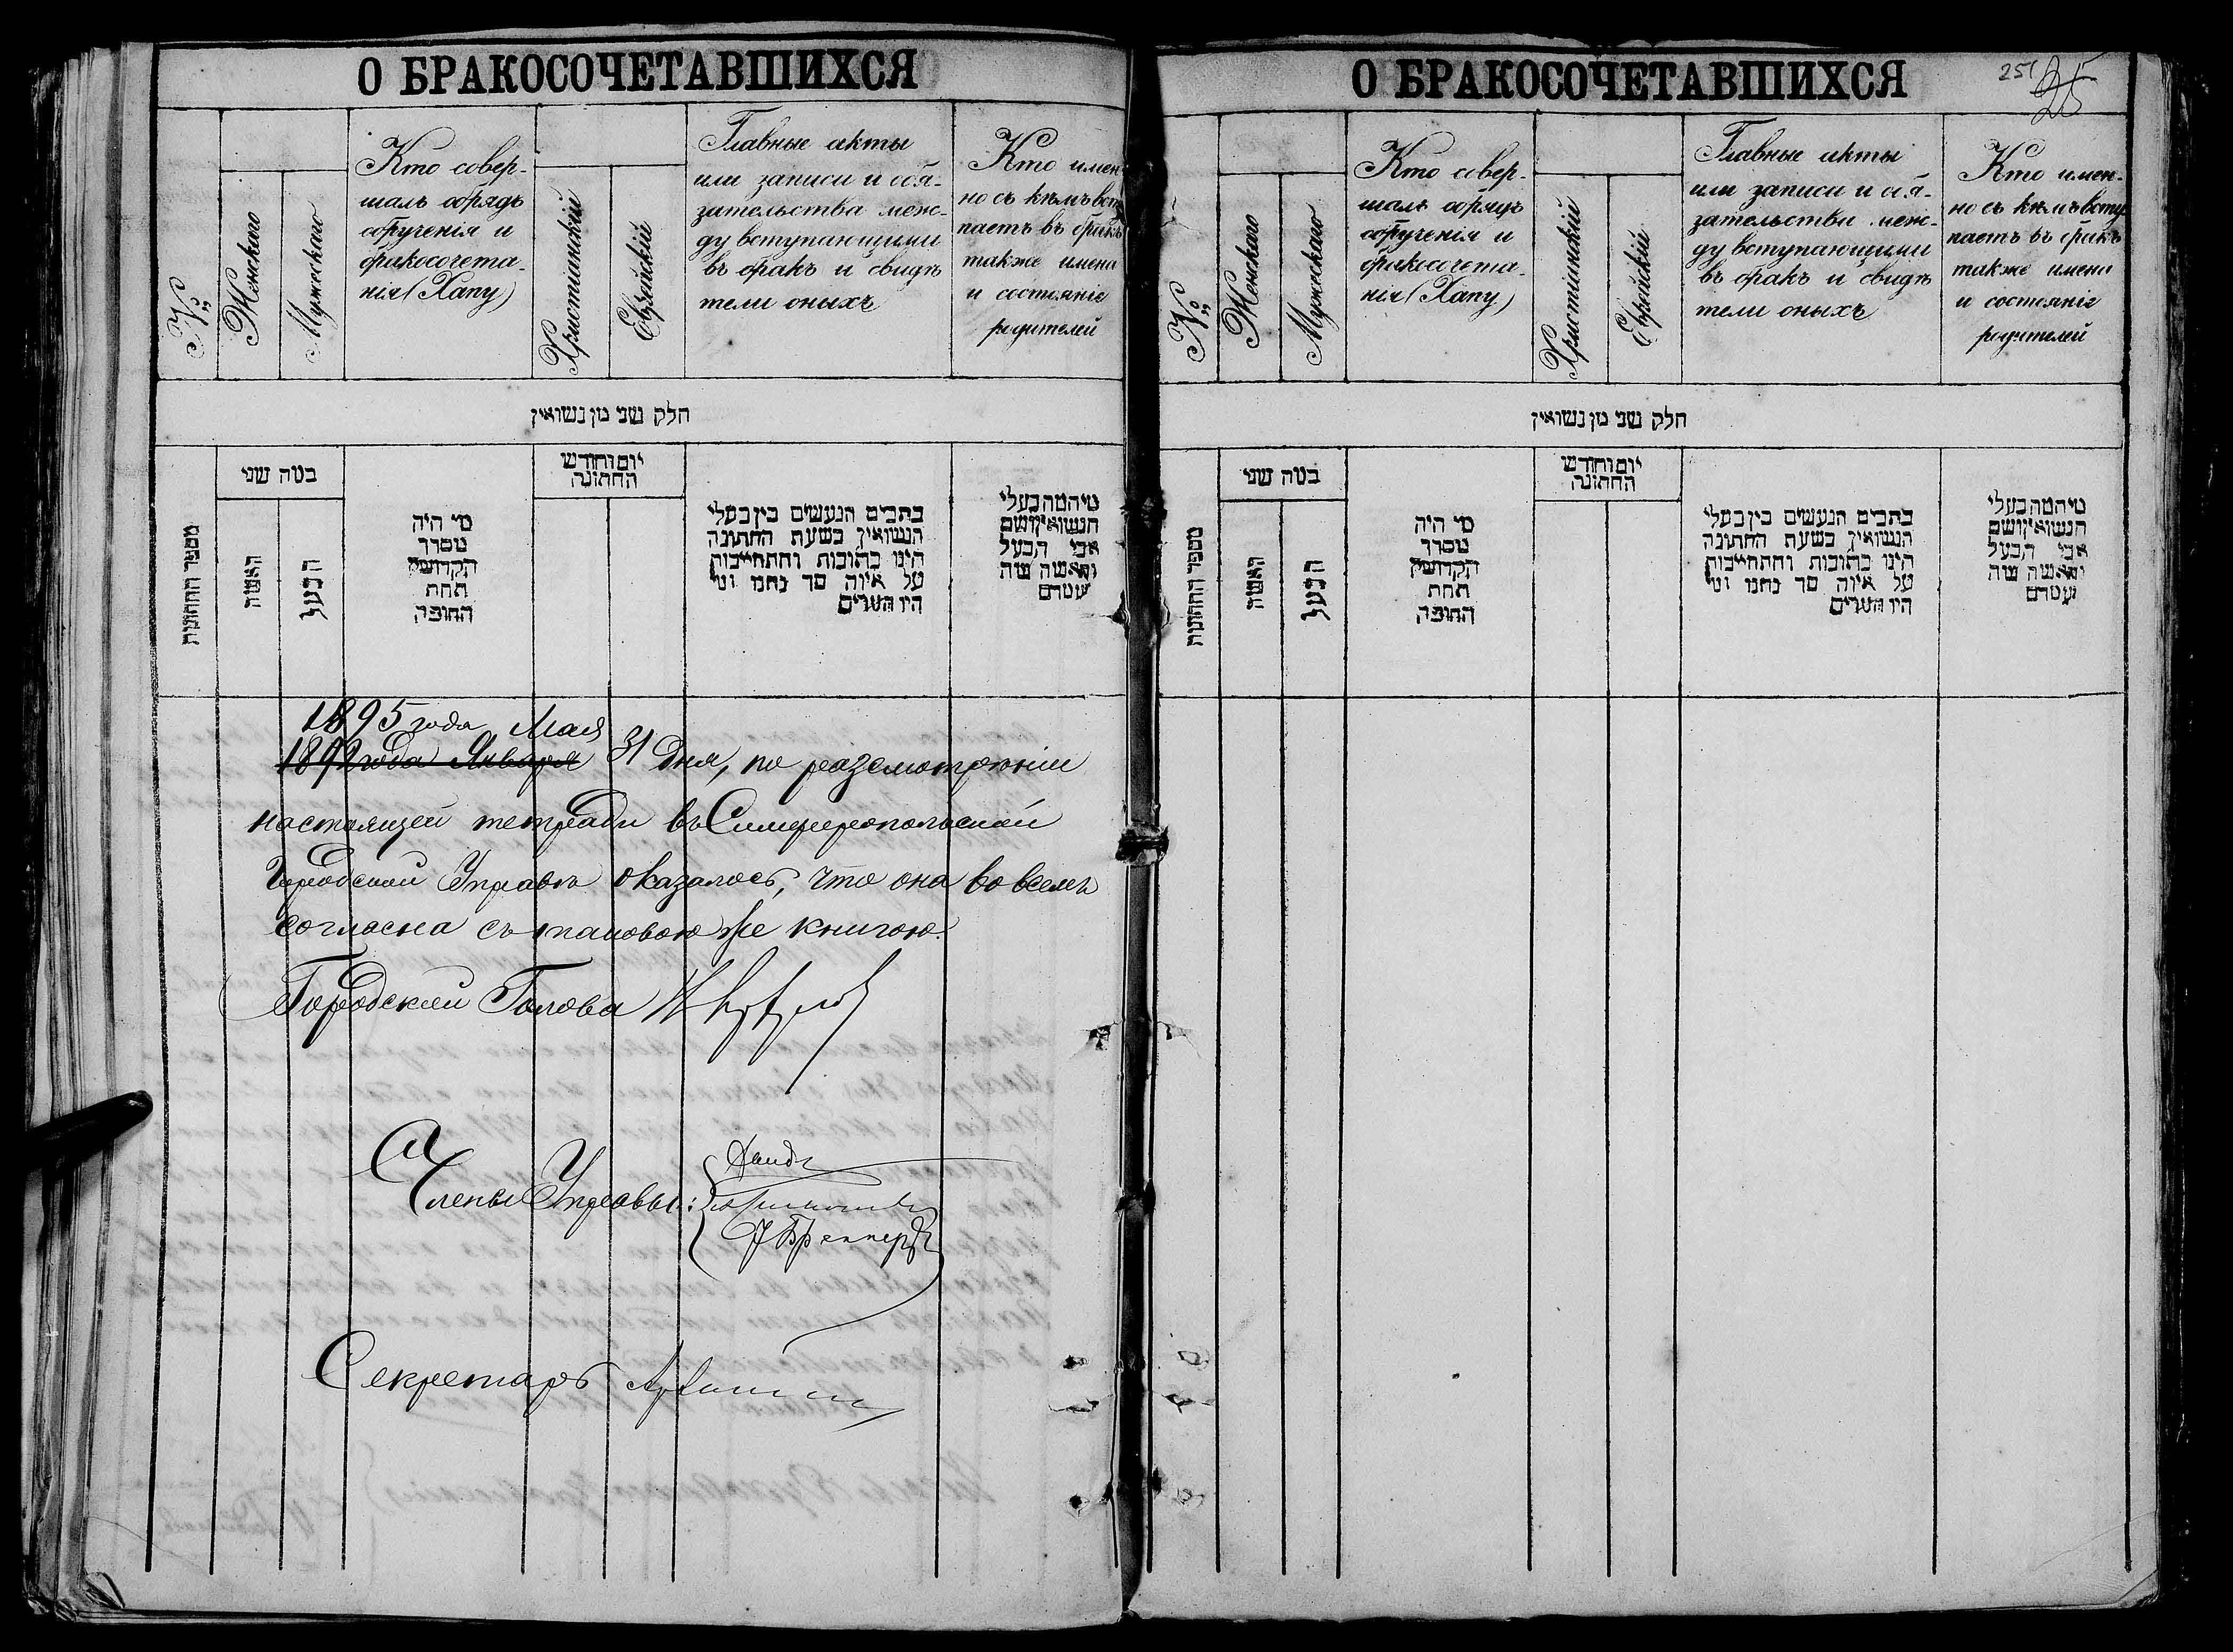 О БРАКОСОЧЕТАВШИХСЯ
№
Женскаго
Мужескаго
Кто совер-
шалъ обрядъ
обрученія и
бракосочета-
нія (Хапу)
Христіанскій
Еврейскій
Главные акты
или записи и обя-
зательства меж-
ду вступающими
въ бракъ и свидѣ
тели оныхъ
Кто имен
но съ кѣмъ всту
паетъ въ бракъ
также имена
и состояніе
родителей
חלק שני מן נשואין
מספר החתונות
כמה שני
האשה
הבעל
מי היה
מסדר
הקדושין
תחת
החופה
יום וחודש
החתונה
כתבים הנעשים בין בעלי
הנשואין בשעת החתונה
היינו כתובות והתחייבות
על איזה סך נתנו ומי
היו העדים
מי המה בעלי
הנשואין ושם
אבי הבעל
והאשה ומה
מעמדם
1895 года Мая
1892 года Января 31 дня, по разсмотрѣніи
настоящей тетради въ Симферопольской
Городской Управѣ оказалось, что она во всемъ
согласна съ таковою же книгою.
Городской Голова
Члены Управы:
Секретарь
О БРАКОСОЧЕТАВШИХСЯ
251
25
№
Женскаго
Мужескаго
Кто совер-
шалъ обрядъ
обрученія и
бракосочета-
нія (Хапу)
Христіанскій
Еврейскій
Главные акты
или записи и обя-
зательства меж-
ду вступающими
въ бракъ и свидѣ
тели оныхъ
Кто имен-
но съ кѣмъ всту
паетъ въ бракъ
также имена
и состояніе
родителей
חלק שני מן נשואין
מספר החתונות
כמה שני
האשה
הבעל
מי היה
מסדר
הקדושין
תחת
החופה
יום וחודש
החתונה
כתבים הנעשים בין בעלי
הנשואין בשעת החתונה
היינו כתובות והתחייבות
על איזה סך נתנו ומי
היו העדים
מי המה בעלי
הנשואין ושם
אבי הבעל
והאשה ומה
מעמדם